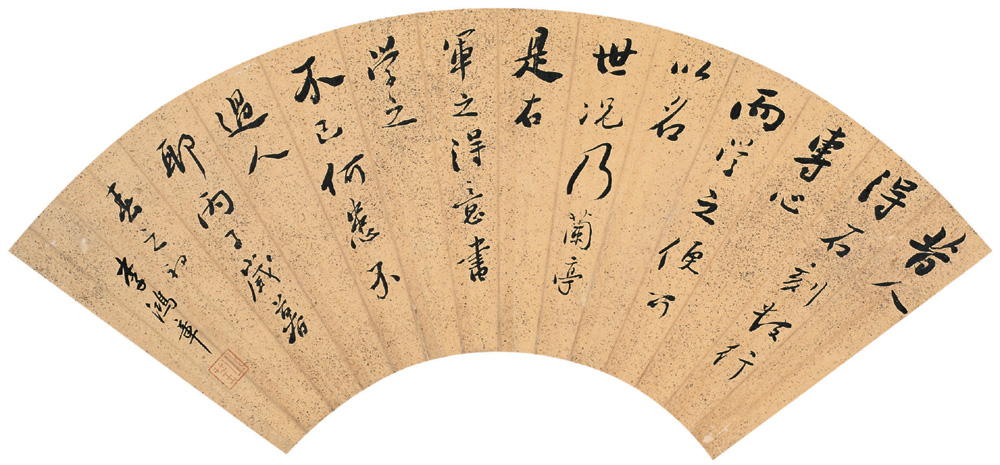 昔人
得石刻数行
專心
而学之便可
以名
世况乃蘭亭
是右
軍之得意書
学之
不已何患不
過人
耶丙子歲暮
春之初
李鴻章